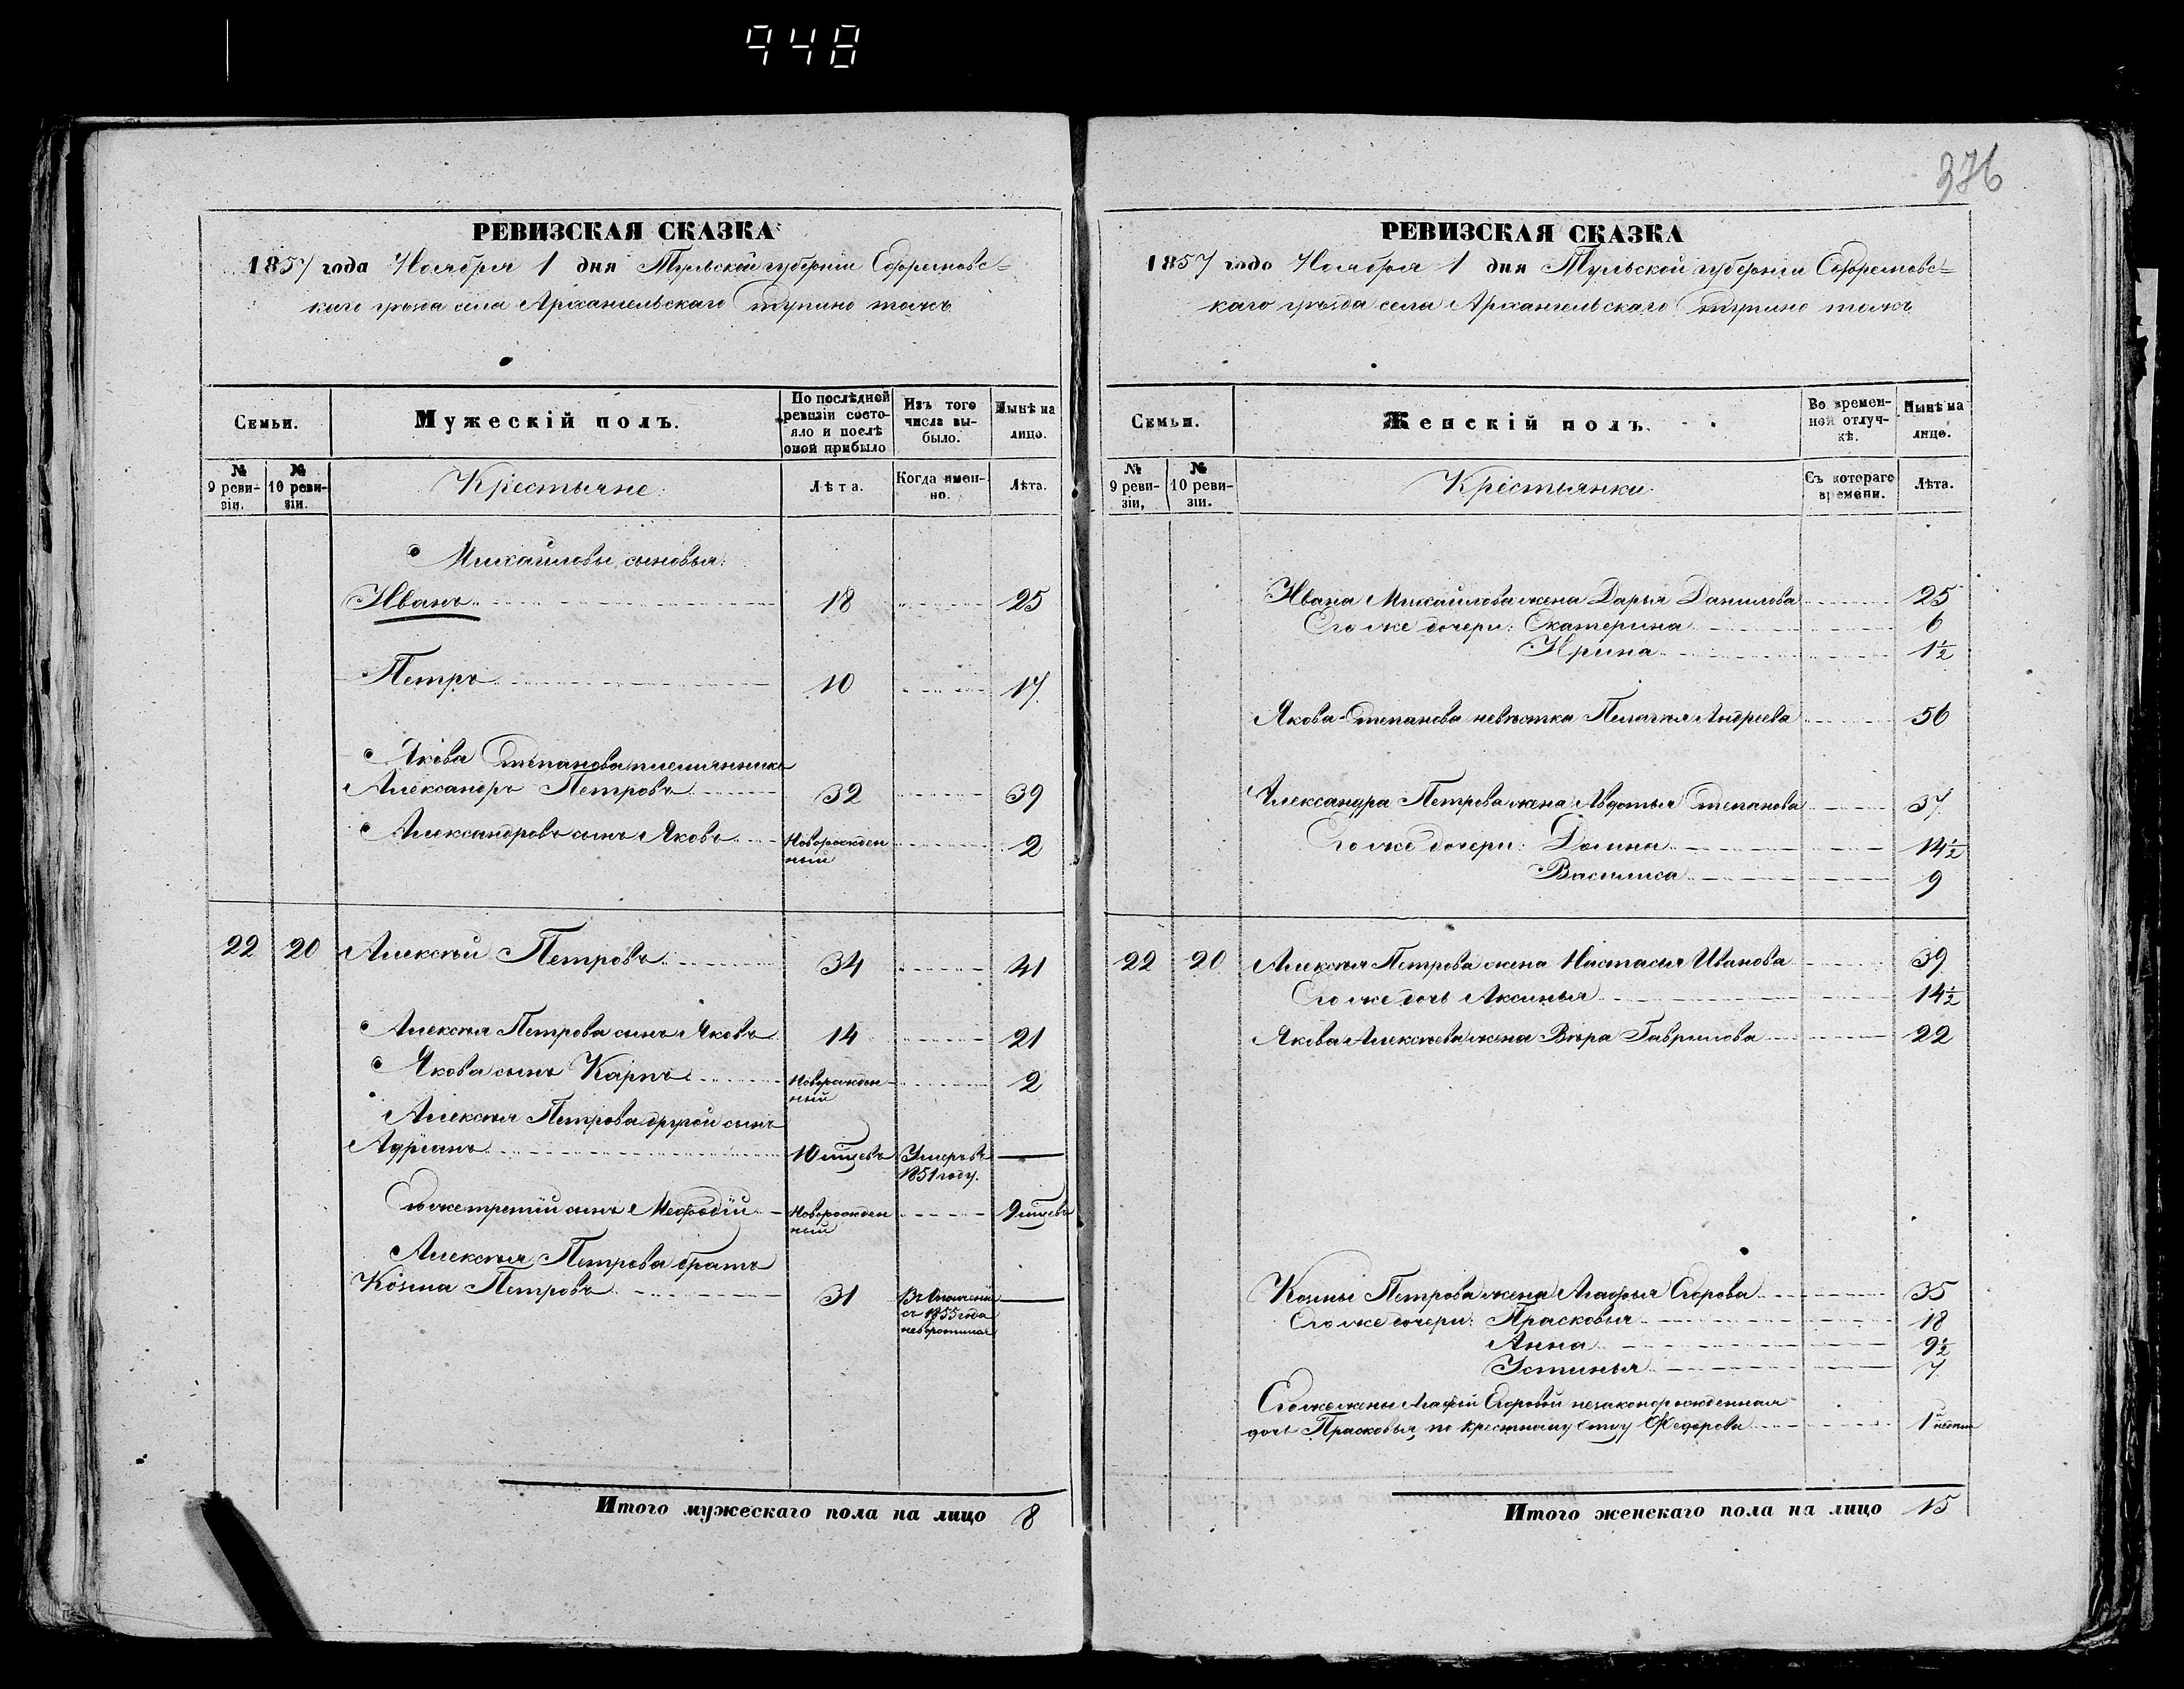 948
376
РЕВИЗСКАЯ СКАЗКА
1857 года Ноября 1 дня Тульской губерніи Ефремовс-
каго уѣзда села Архангельскаго Ступино тожъ
Семьи.
Мужескій полъ.
По послѣдней ревизіи состояло и послѣ оной прибыло
Изъ того числа выбыло.
Нынѣ на лицо.
№ 9 ревизіи.
№ 10 ревизіи.
Крестьяне.
Лѣта.
Когда именно.
Лѣта.
Михайловы сыновья:
Иванъ 18 25
Петръ 10 17
Якова Степанова племянникъ
Александръ Петровъ 32 39
Александровъ сынъ Яковъ Новорожденный 2
22 20 Алексѣй Петровъ 34 41
Алексѣя Петрова сынъ Яковъ 14 21
Якова сынъ Карпъ Новорожденный 2
Алексѣя Петрова другой сынъ
Адріанъ 10 мцевъ Умеръ въ 1851 году.
Его же третій сынъ Мефодій Новорожденный 9 мцевъ
Алексѣя Петрова братъ
Козма Петровъ 31 с 1855 года
Итого мужескаго пола на лицо 8
РЕВИЗСКАЯ СКАЗКА
1857 годо Ноября 1 дня Тульской губерніи Ефремовс-
каго уѣзда села Архангельскаго Ступино тожъ
Семьи.
Женскій полъ.
Во временной отлучкѣ.
Нынѣ на лицо.
№ 9 ревизіи,
№ 10 ревизіи.
Крестьянки.
Съ котораго времени.
Лѣта.
Ивана Михайлова жена Дарья Данилова 25
Его же дочери: Екатерина 6
Ирина 1½
Якова Степанова невѣстка Пелагѣя Андреева 56
Александра Петрова жена Авдотья Степанова 37
Его же дочери: Домна 14½
Василиса 9
22 20 Алексѣя Петрова жена Настасья Иванова 39
Его же дочь Аксинья 14½
Якова Алексѣева жена Вѣра Гаврилова 22
Козмы Петрова жена Агафья Егорова 35
Его же дочери: Прасковья 18
Анна 9½
Устинья 7
Его же жены Агафьи Егоровой незаконорожденная
дочь Прасковья, по крестному отцу Федорова 1
Итого женскаго пола на лицо 15